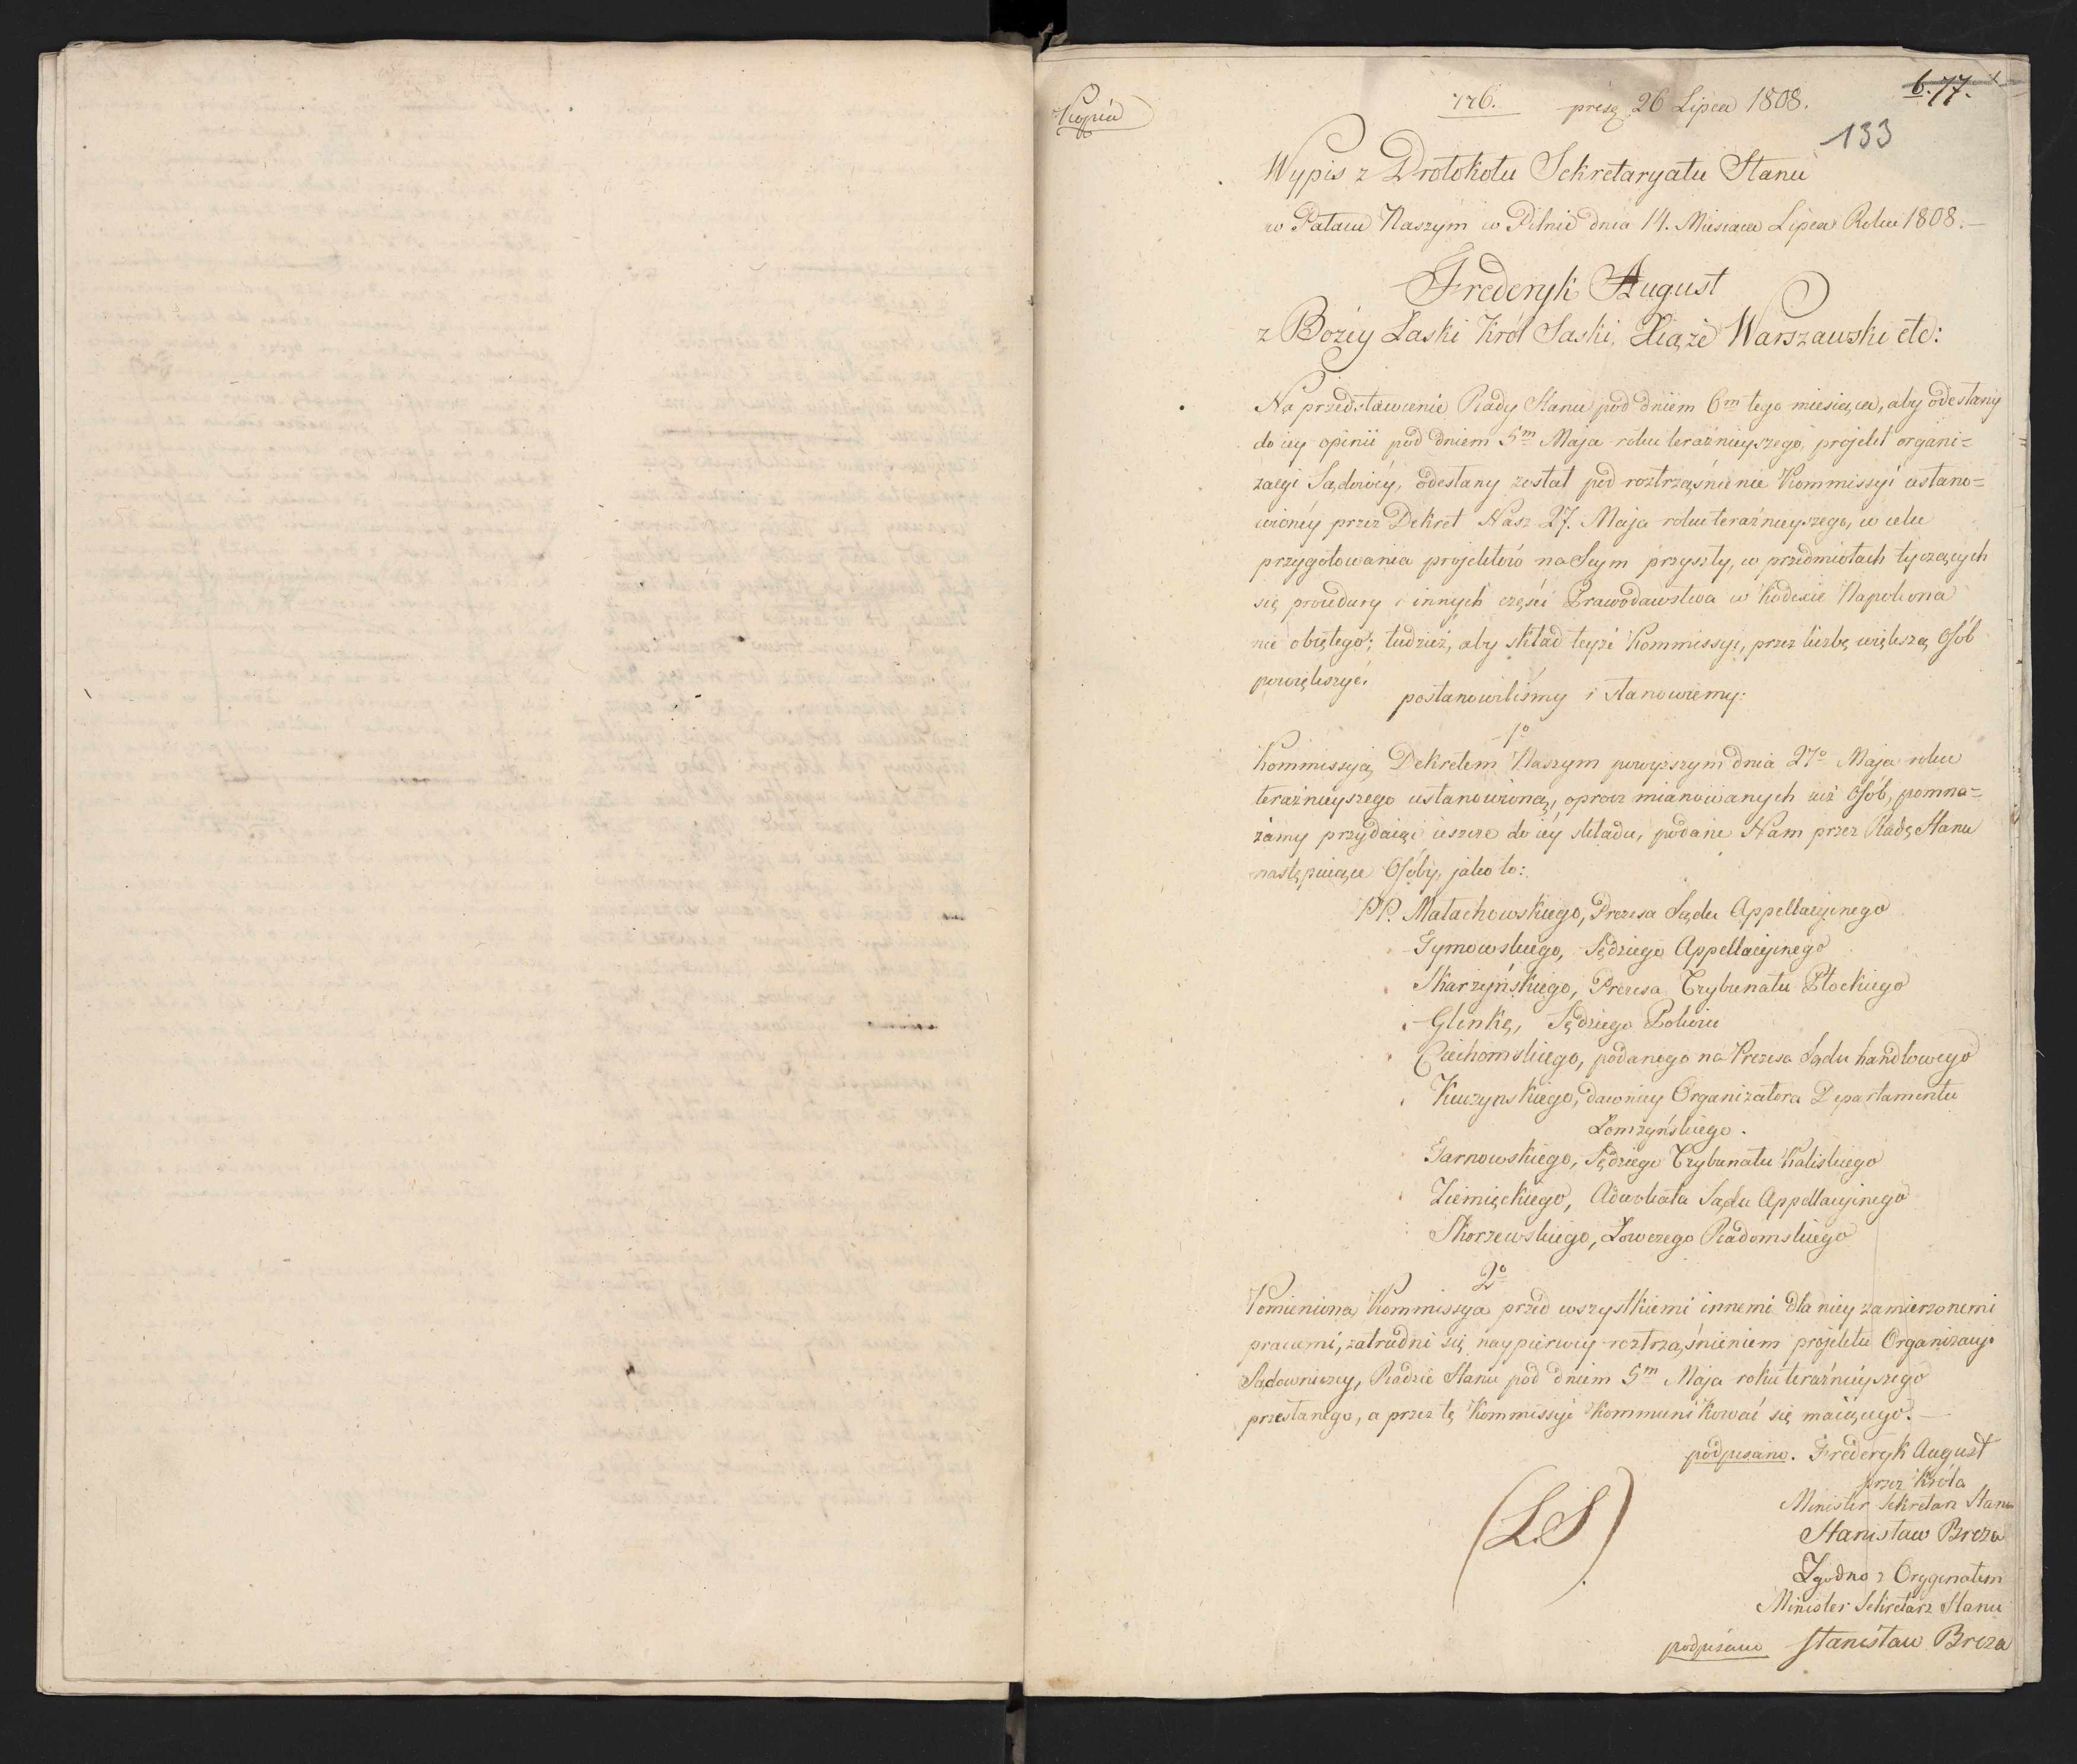 Kopia
776. presę 26 Lipca 1808.
6.77.
133
Wypis z Protokołu Sekretaryatu Stanu
w Pałacu Naszym w Pilnic dnia 14. Miesiąca Lipca Roku 1808.—
Frederyk August
z Bożey Łaski Król Saski, Xiąże Warszawski etc:
Na przedstawienie Rady Stanu pod dniem 6m tego miesiąca, aby odesłany
do iey opinii pod dniem 5m Maja roku teraźnieyszego, projekt organi=
zacyi Sądowéy, odesłany został pod roztrząśnienie Kommissyi ustano=
wionéy przez Dekret Nasz 27. Maja roku teraźnieyszego, w celu
przygotowania projektów na Seym przyszły, w przedmiotach tyczących
się procedury i innych części Prawodawstwa w Kodexie Napoleona
nie obiętego; tudzież, aby skład teyże Kommissyi, przez liczbę większą Osób
powiększyć.
postanowiliśmy i stanowiemy:
1o
Kommissyą, Dekretem Naszym powyższym dnia 27o Maja roku
teraźnieyszego ustanowioną, oprocz mianowanych iuż Osób, pomna=
żamy przydaiąc ieszcze do iéy składu, podane Nam przez Radę Stanu
następuiące Osoby, jako to:
PP. Małachowskiego, Prezesa Sądu Appellacyinego
Tymowskiego, Sędziego Appellacyinego
Skarzyńskiego, Prezesa Trybunału Płockiego
Glinkę, Sędziego Pokoiu
Ciechomskiego, podanego na Prezesa Sądu handlowego
Kuczyńskiego, dawniey Organizatora Departamentu
Łomżyńskiego.
Tarnowskiego, Sędziego Trybunału Kaliskiego
Ziemięckiego, Adwokata Sądu Appellacyinego
Skorzewskiego, Łowczego Radomskiego
2o
Pomieniona Kommissya przed wszystkiemi innemi dla niey zamierzonemi
pracami, zatrudni się naypierwey roztrząśnieniem projektu Organizacyi
Sądowniczey, Radzie Stanu pod dniem 5m Maja roku teraźnieyszego
przesłanego, a przez tę Kommissyi Kommunikować się maiącego.—
podpisano. Frederyk August
przez Króla
Minister Sekretarz Stanu
Stanisław Breza
(L.S.)
Zgodno z Orygenałem
Minister Sekretarz Stanu
podpisano Stanisław Breza